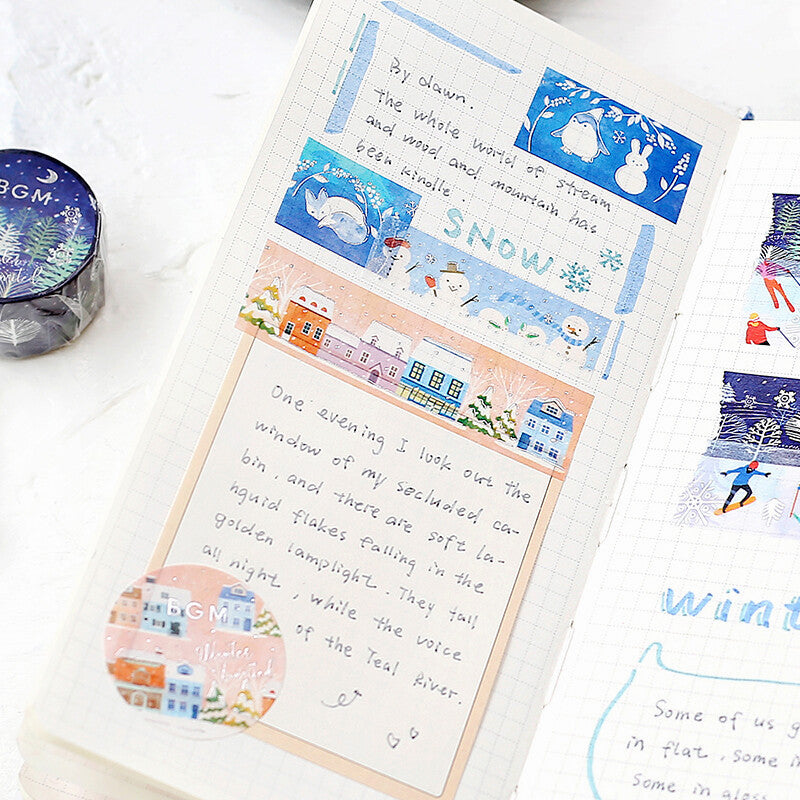 BGM
By dawn.
the whole world of stream
and wood and mountain has
been kindle.
SNOW
One evening I look out the
window of my secluded ca-
bin, and there are soft la-
nguid flakes falling in the
golden lamplight. They fall
all night, while the voice
of the Teal River.
BGM
Winter
Limited
Wint
Some of us g
in flat, some in
some in glass